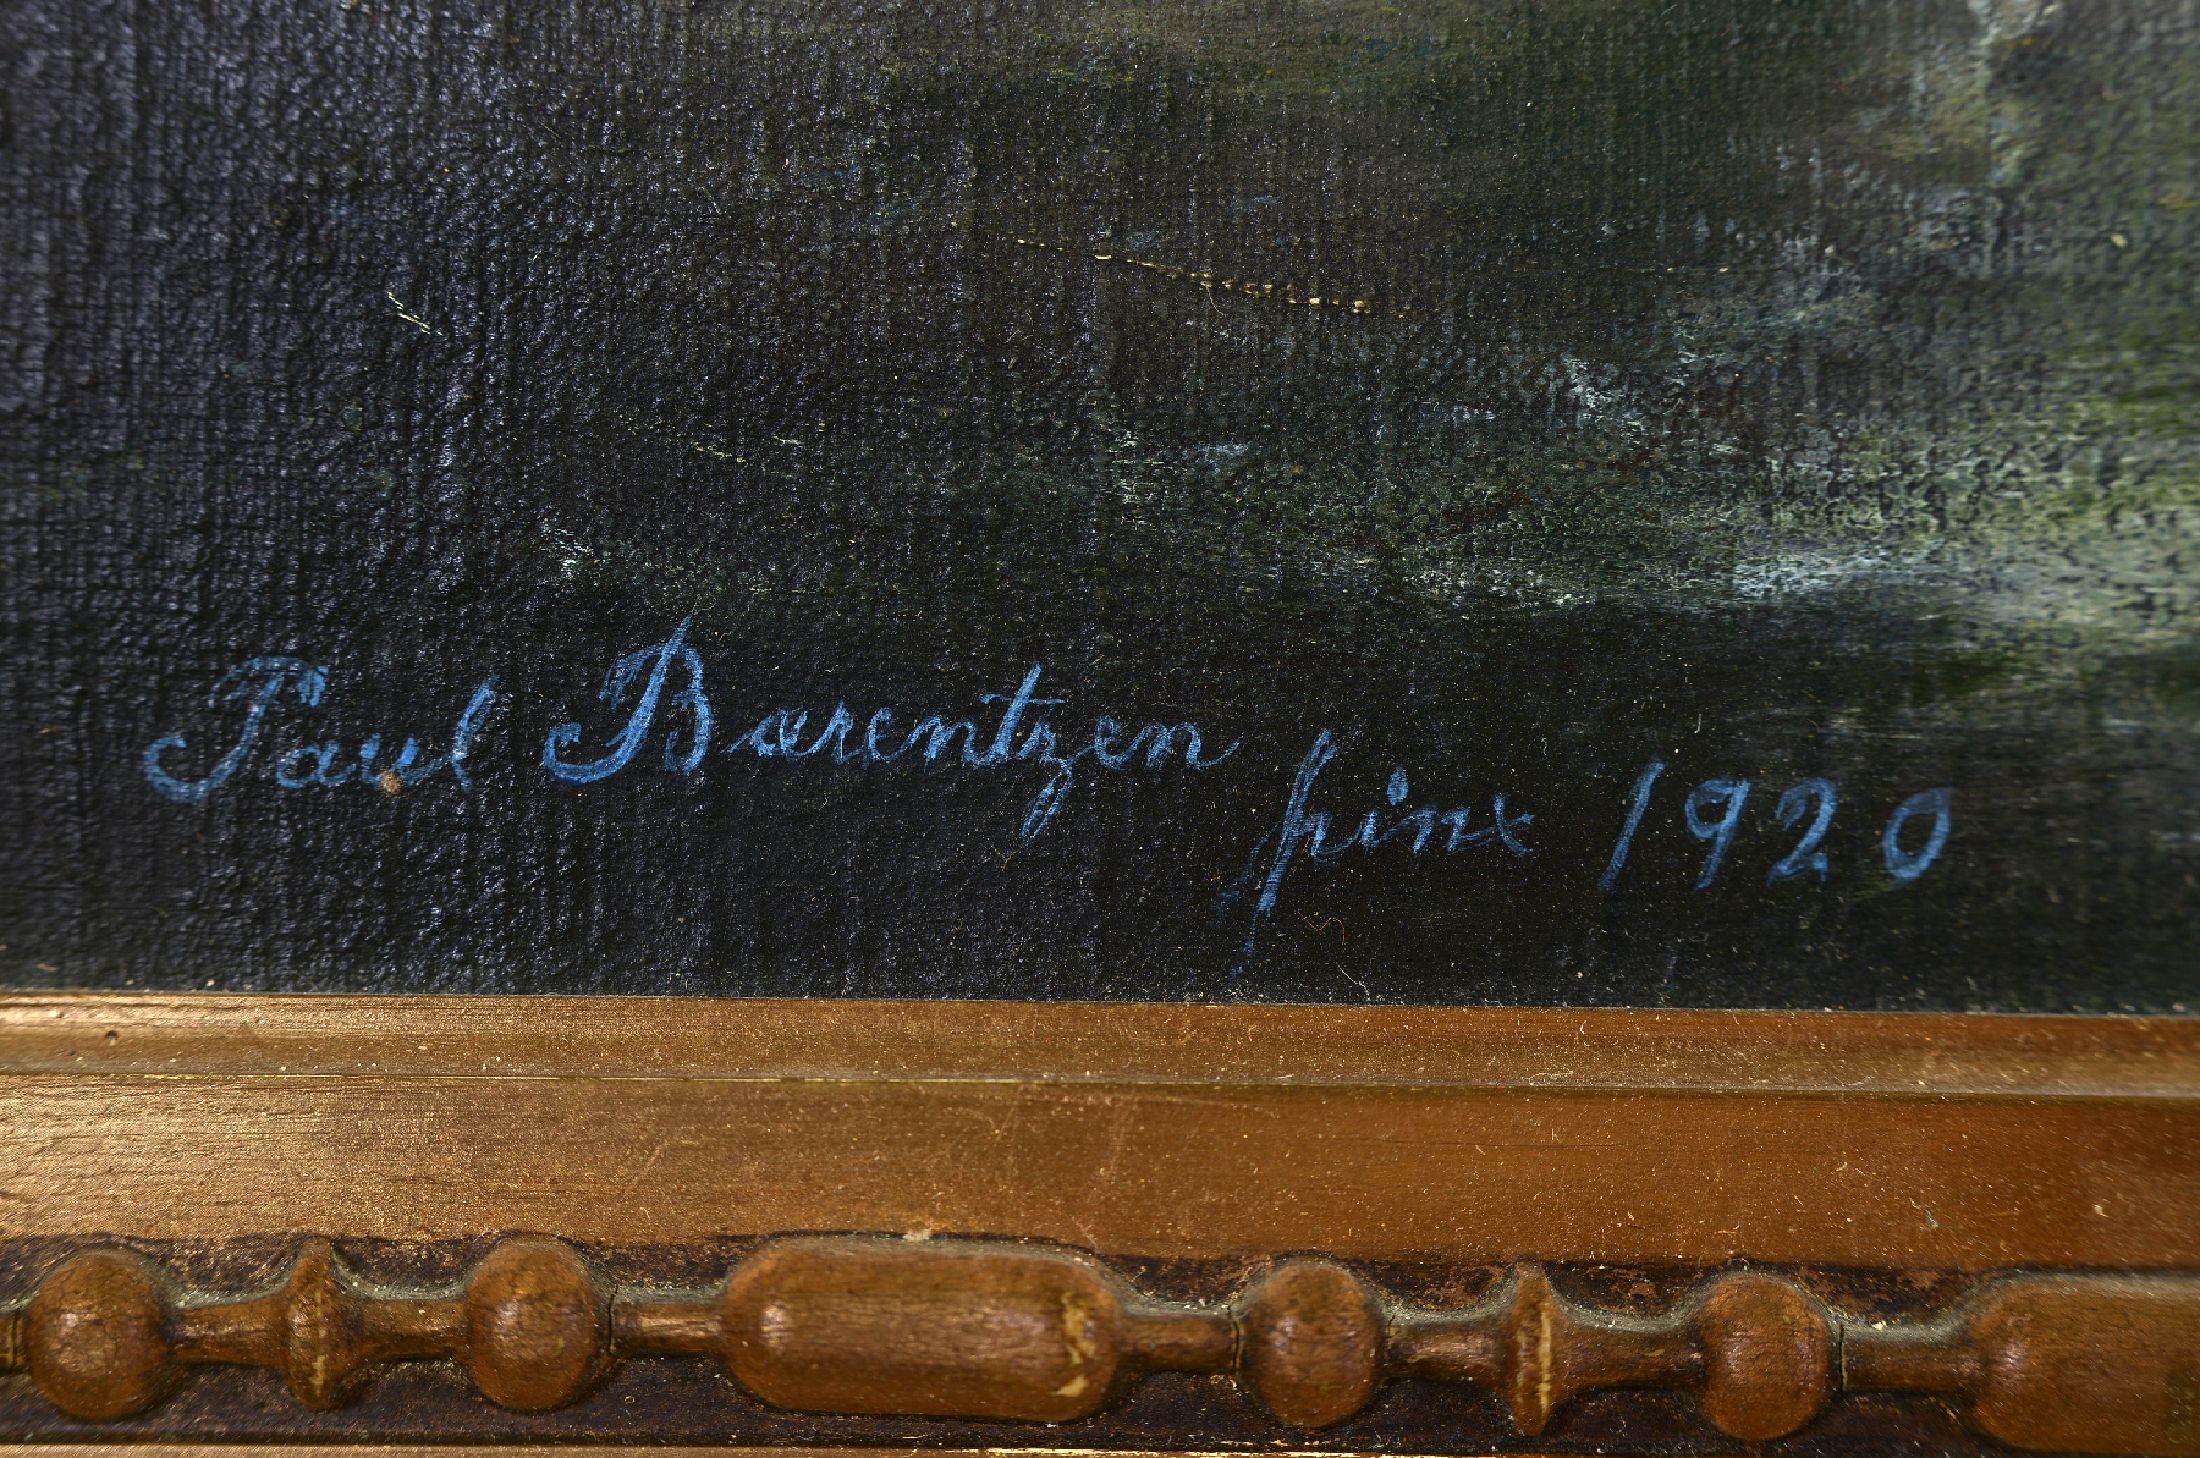 Paul Barentzen pinx 1920